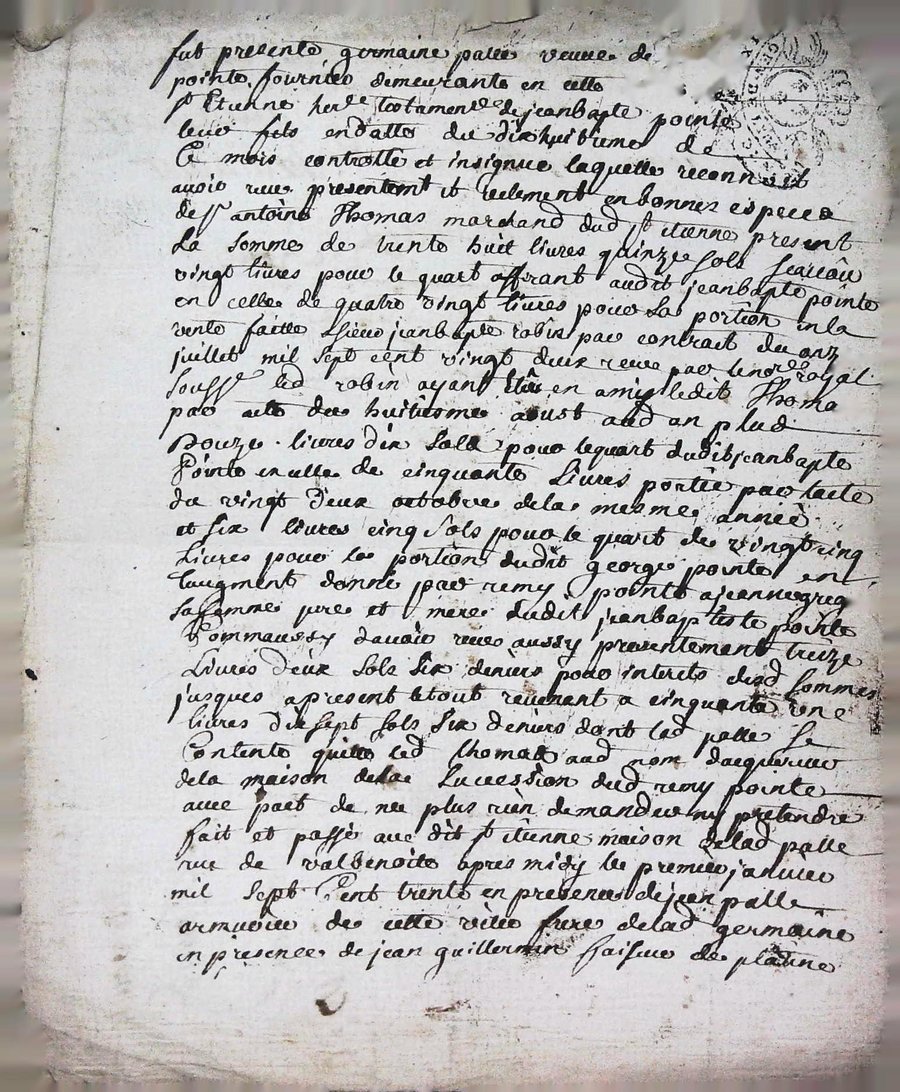 fut presente germaine palle veuve de
pointe fournier demeurante en cette
st Etienne her.re testamen.re de jeanbapte pointe
leur fils en datte du dixhuitieme de
Ce mois controllé et insignué laquelle reconnoit
avoir receu presentemt et réelement en bonnes especes
de sr antoine Thomas marchand dud st étienne present
La somme de trente huit livres quinze sols scavoir
vingt livres pour le quart afferant audit jeanbapte pointe
en celle de quatre vingt livres pour sa portion en la
vente faitte a sieur jeanbapte robin par contrait du onz
juillet mil sept cent vingt deux receu par le no.re royal
souss.é led robin ayant élu en amy ledit Thoma
par acte du huitiesme aoust aud an plus
Douze livres dix sols pour le quart dudit jeanbapte
Pointe en celle de cinquante Livres portée par lacte
du vingt deux octobre de la mesme année
et six livres cinq sols pour le quart de vingtcinq
Livres pour la portion dudit george pointe en
laugment donné par remy pointe a jeanne greq
sa femme pere et mere dudit jeanbaptiste pointe
Comm aussy davoir receu aussy presentement treize
Livres deux sols six deniers pour interets desd sommes
jusques apresent le tout revenant a cinquante une
livres dix sept sols six deniers dont lad palle se
Contente quitte led thomas aud nom dacquereur
de la maison de la succession dud remy pointe
avec pact de ne plus rien demander ny pretendre
fait et passé audit st étienne maison de lad palle
rue de valbenoite apres midy le premier janvier
mil sept Cent trente en presence de jean palle
armurier de cette ville frere de lad germaine
en presence de jean guillermin faiseur de platine